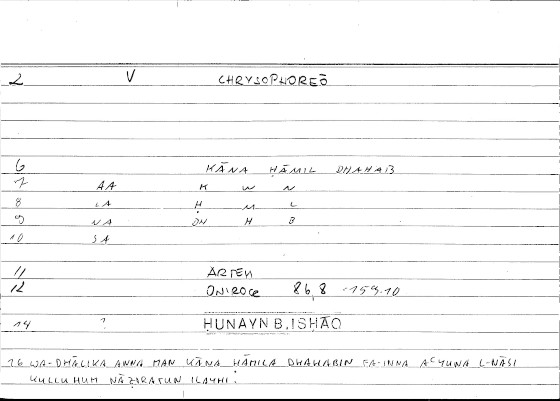 2 V CHRYSOPHOREŌ
6 KĀNA ḤĀMIL DHAHAB
7 AA K W N
8 LA Ḥ M L
9 NA DH H B
10 SA
11 ARTEM
12 ONIROCR 86,8 - 159.10
14 ? ḤUNAYN B. ISḤĀQ
16 WA-DHĀLIKA ANNA MAN KĀNA ḤĀMILA DHAHABIN FA-INNA AꜤYUNA L-NĀSI
KULLUHUM NĀẒIRATUN ILAYHI.